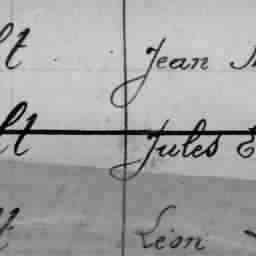 lt Jean
lt Jules E
t Léon